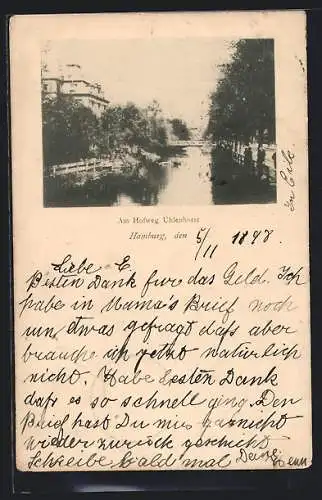 In Eile
Am Hofweg Uhlenhorst
Hamburg, den 5/11 1898.
Liebe E.
Besten Dank für das Geld. Ich
habe in Mama's Brief noch
um etwas gefragt dass aber
brauche ich jetzt natürlich
nicht. Habe besten Dank
dass es so schnell ging. Den
Brief hast Du mir garnicht
wieder zurück geschickt
Schreibe bald mal Deine